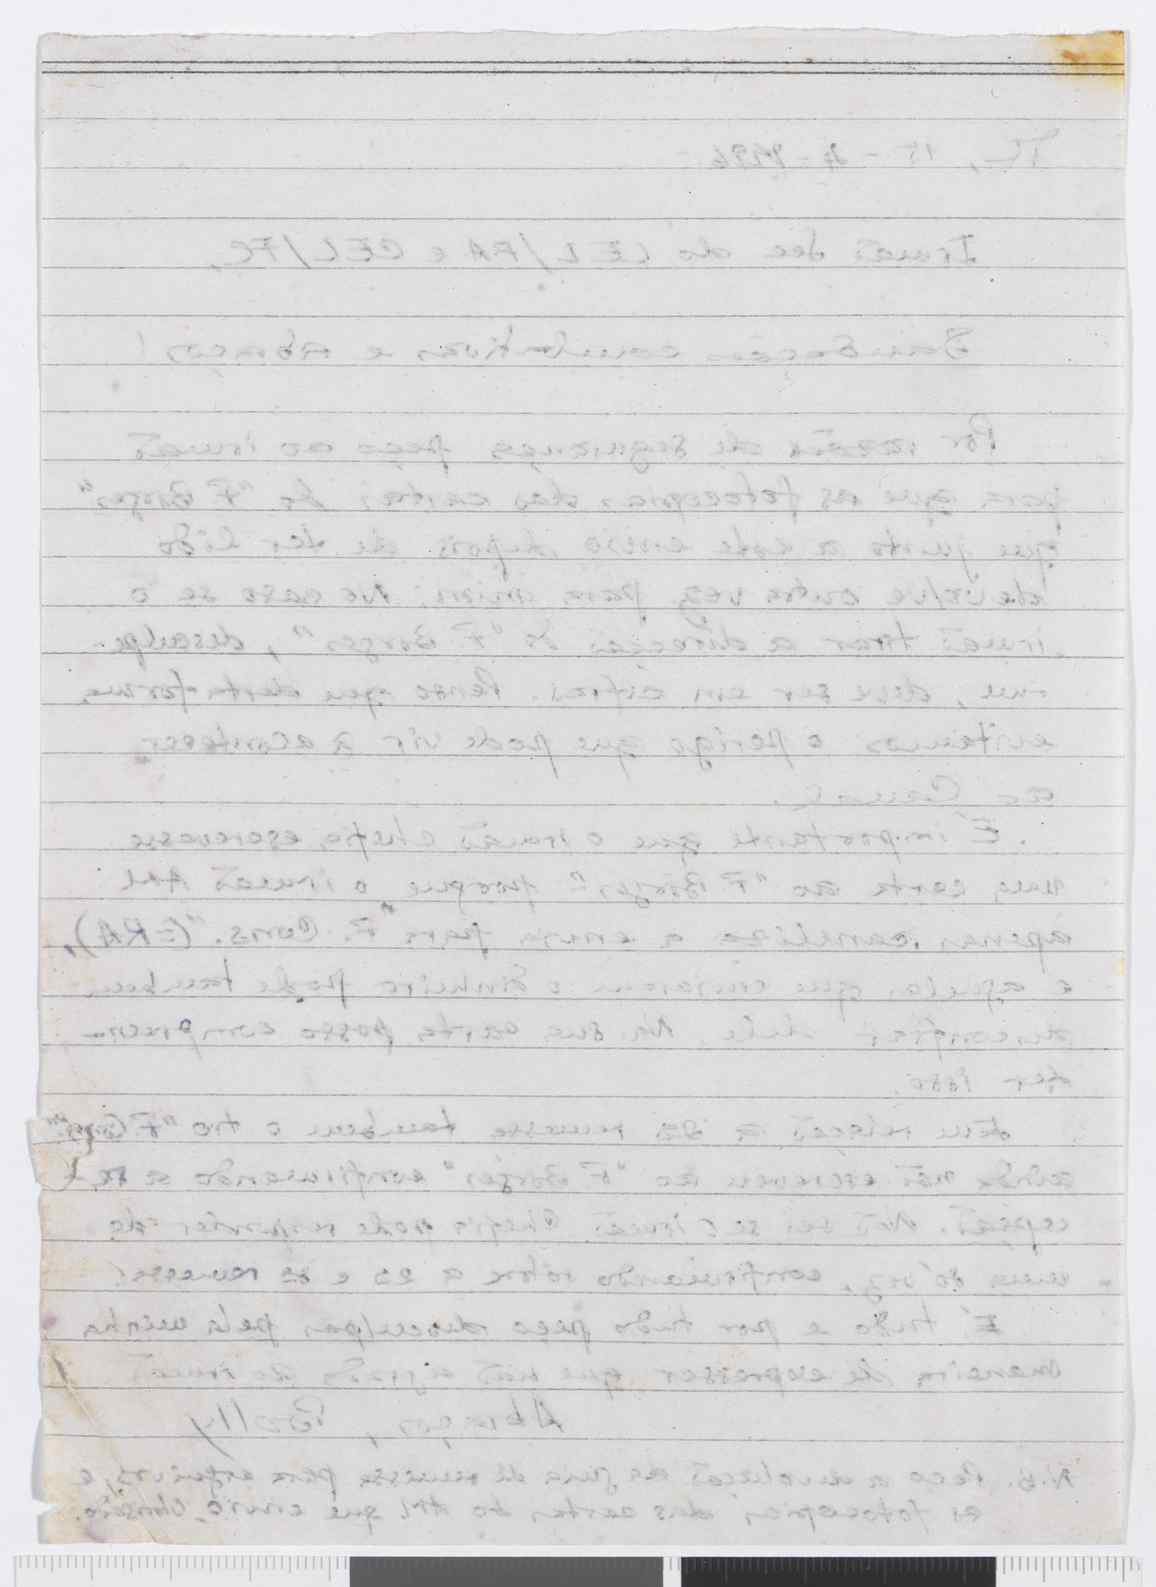 TC, 15-4-1996
Irmão Sec do CEL/FA e CEL/FC,
Saudações combativas e Abraços!
Por razões de segurança peço ao irmão
para que as fotocopias das cartas do "F Borges"
que junto a este envio depois de ter lido
devolve outra vez para mim; No caso se o
irmão tirar a direcção do "F. Borges", desculpe-
me, deve ser em cifras. Penso que desta forma
evitamos o perigo que pode vir a acontecer
ao Canal.
É importante que o irmão chefe escrevesse
uma carta ao "F Borges" porque o irmão AHL
apenas canalizo a envia para "F. Cons." (ERA),
e aquelas que enviaram o dinheiro pode tambem
desconfiar dele. Na sua carta posso compreen-
der isso.
Em relação a remessa tambem o tio "F.
ainda não escreveu ao "F Borges" confirmando a
cepção. Não sei se o irmão Chefe pode responder de
uma só vez, confirmando sobre a e remessa!
É tudo e por tudo peço desculpas pela minha
maneira de expressar que não agrada ao irmão
Abraços, Brolly
N.B. Peço a devolução da guia de remessa para arquivos, e
as fotocopias das cartas do AHL que envio.